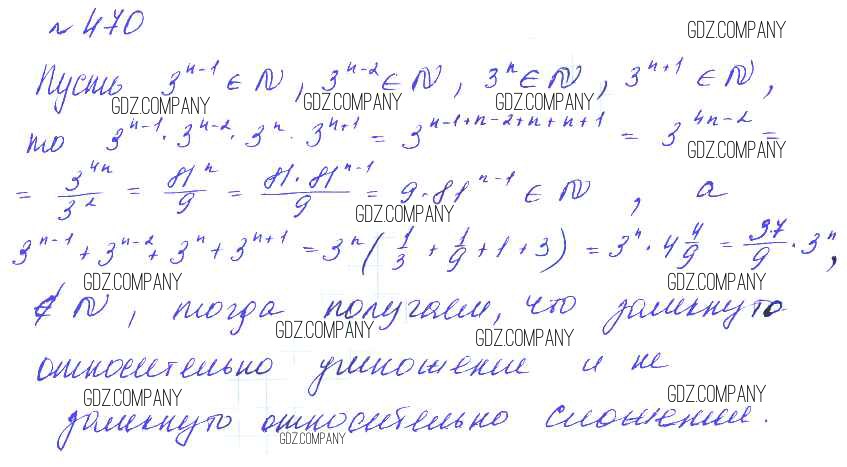 ~ 470
GDZ.COMPANY
Пусть 3^{n-1} ∈ N, 3^{n-2} ∈ N, 3^n ∈ N, 3^{n+1} ∈ N,
GDZ.COMPANY GDZ.COMPANY GDZ.COMPANY
то 3^{n-1} · 3^{n-2} · 3^n · 3^{n+1} = 3^{n-1+n-2+n+n+1} = 3^{4n-2} =
GDZ.COMPANY
= \frac{3^{4n}}{3^2} = \frac{81^n}{9} = \frac{81·81^{n-1}}{9} = 9·81^{n-1} ∈ N, а
GDZ.COMPANY
3^{n-1} + 3^{n-2} + 3^n + 3^{n+1} = 3^n (\frac{1}{3} + \frac{1}{9} + 1 + 3) = 3^n · 4\frac{4}{9} = \frac{37}{9} · 3^n,
GDZ.COMPANY GDZ.COMPANY
∉ N, тогда получаем, что замкнуто
GDZ.COMPANY GDZ.COMPANY
относительно умножение и не
GDZ.COMPANY GDZ.COMPANY
замкнуто относительно сложения.
GDZ.COMPANY